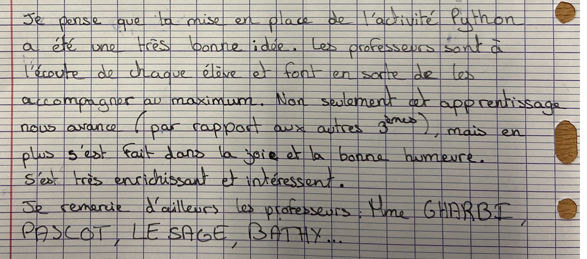 Je pense que la mise en place de l'activité Python
a été une très bonne idée. Les professeurs sont à
l'écoute de chaque élève et font en sorte de les
accompagner au maximum. Non seulement cet apprentissage
nous avance (par rapport aux autres 3èmes), mais en
plus s'est fait dans la joie et la bonne humeure.
S'est très enrichissant et intéressent.
Je remercie d'ailleurs les professeurs : Mme GHARBI,
PASCOT, LE SAGE, BATHY...